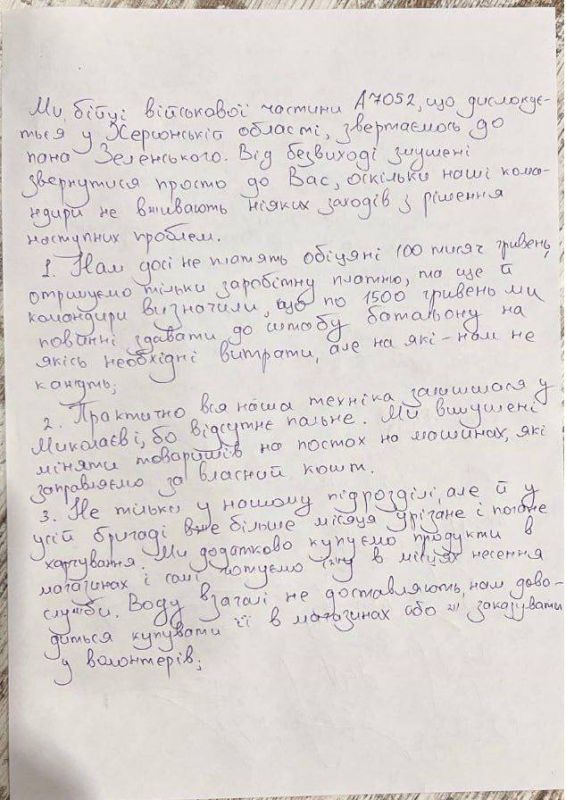 Ми, бійці військової частини А7052, що дислокує-
ться у Херсонській області, звертаємось до
пана Зеленського. Від безвиході змушені
звернутися просто до Вас, оскільки наші кома-
ндири не вживають ніяких заходів з рішення
наступних проблем.
1. Нам досі не платять обіцяні 100 тисяч гривень,
отримуємо тільки заробітну платню, та ще й
командири визначили, що по 1500 гривень ми
повинні здавати до штабу батальону на
якісь необхідні витрати, але на які - нам не
кажуть;
2. Практично вся наша техніка залишилася у
Миколаєві, бо відсутнє пальне. Ми вимушені
міняти товаришів на постах на машинах, які
заправляємо за власний кошт.
3. Не тільки у нашому підрозділі, але й у
усій бригаді вже більше місяця урізане і погане
харчування. Ми додатково купуємо продукти в
магазинах і самі готуємо їжу в місцях несення
служби. Воду взагалі не доставляють, нам дово-
диться купувати її в магазинах або заказувати
у волонтерів;